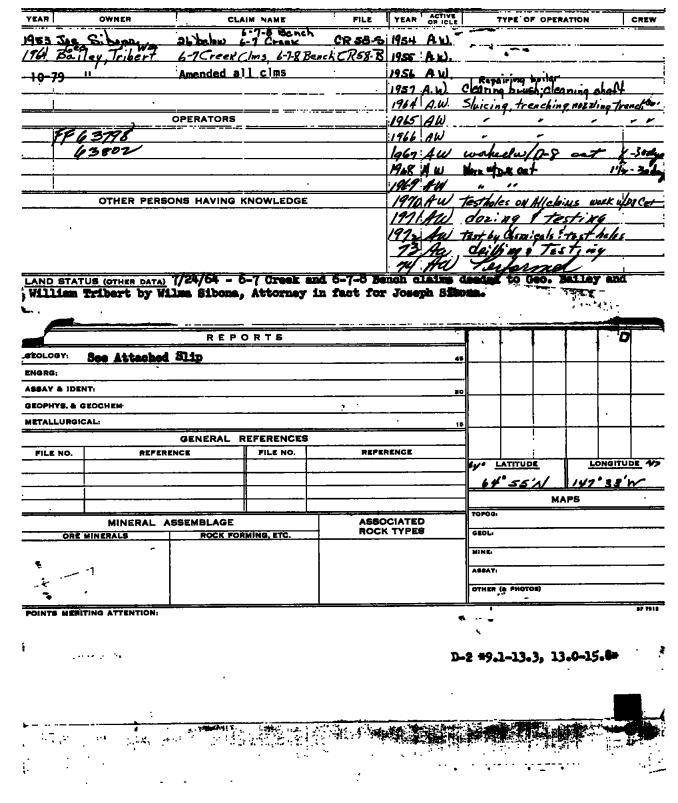 YEAR OWNER CLAIM NAME FILE YEAR ACTIVE OR IDLE TYPE OF OPERATION CREW
6-7-8 Bench
1953 Joe 26 below 6-7 Creek CR 58-B 1954 A.W.
Geo Wm
1964 Bailey, Tribert 6-7 Creek Clms, 6-7-8 Bench CR58-B 1955 A.W.
10-79 " Amended all clms 1956 A.W.
Repairing boiler
1957 A.W. Clearing brush, cleaning shaft
1964 A.W. Sluicing, trenching, nozzling
OPERATORS 1965 AW " " " " "
FF 63798 1966 AW " "
63802 1967 AW w/D-8 cat
1968 AW Work w/D-8 cat
1969 AW " "
OTHER PERSONS HAVING KNOWLEDGE 1970 AW Testholes on All claims work w/D8 Cat
1971 AW dozing & testing
1972 AW Test by Chemicals & test holes
73 drilling & Testing
74 Performed
LAND STATUS (OTHER DATA) 7/24/64 - 6-7 Creek and 6-7-8 Bench claims deeded to Geo. Bailey and
William Tribert by Wilma Sibona, Attorney in fact for Joseph Sibona.
REPORTS D
GEOLOGY: See Attached Slip 45
ENGRG:
ASSAY & IDENT: 20
GEOPHYS. & GEOCHEM
METALLURGICAL: 15
GENERAL REFERENCES
FILE NO. REFERENCE FILE NO. REFERENCE LATITUDE LONGITUDE
64° 55'N 147° 38'W
MAPS
TOPOG:
MINERAL ASSEMBLAGE ASSOCIATED ROCK TYPES
ORE MINERALS ROCK FORMING, ETC. GEOL:
MINE:
ASSAY:
OTHER (& PHOTOS)
POINTS MERITING ATTENTION:
D-2 *9.1-13.3, 13.0-15.8*